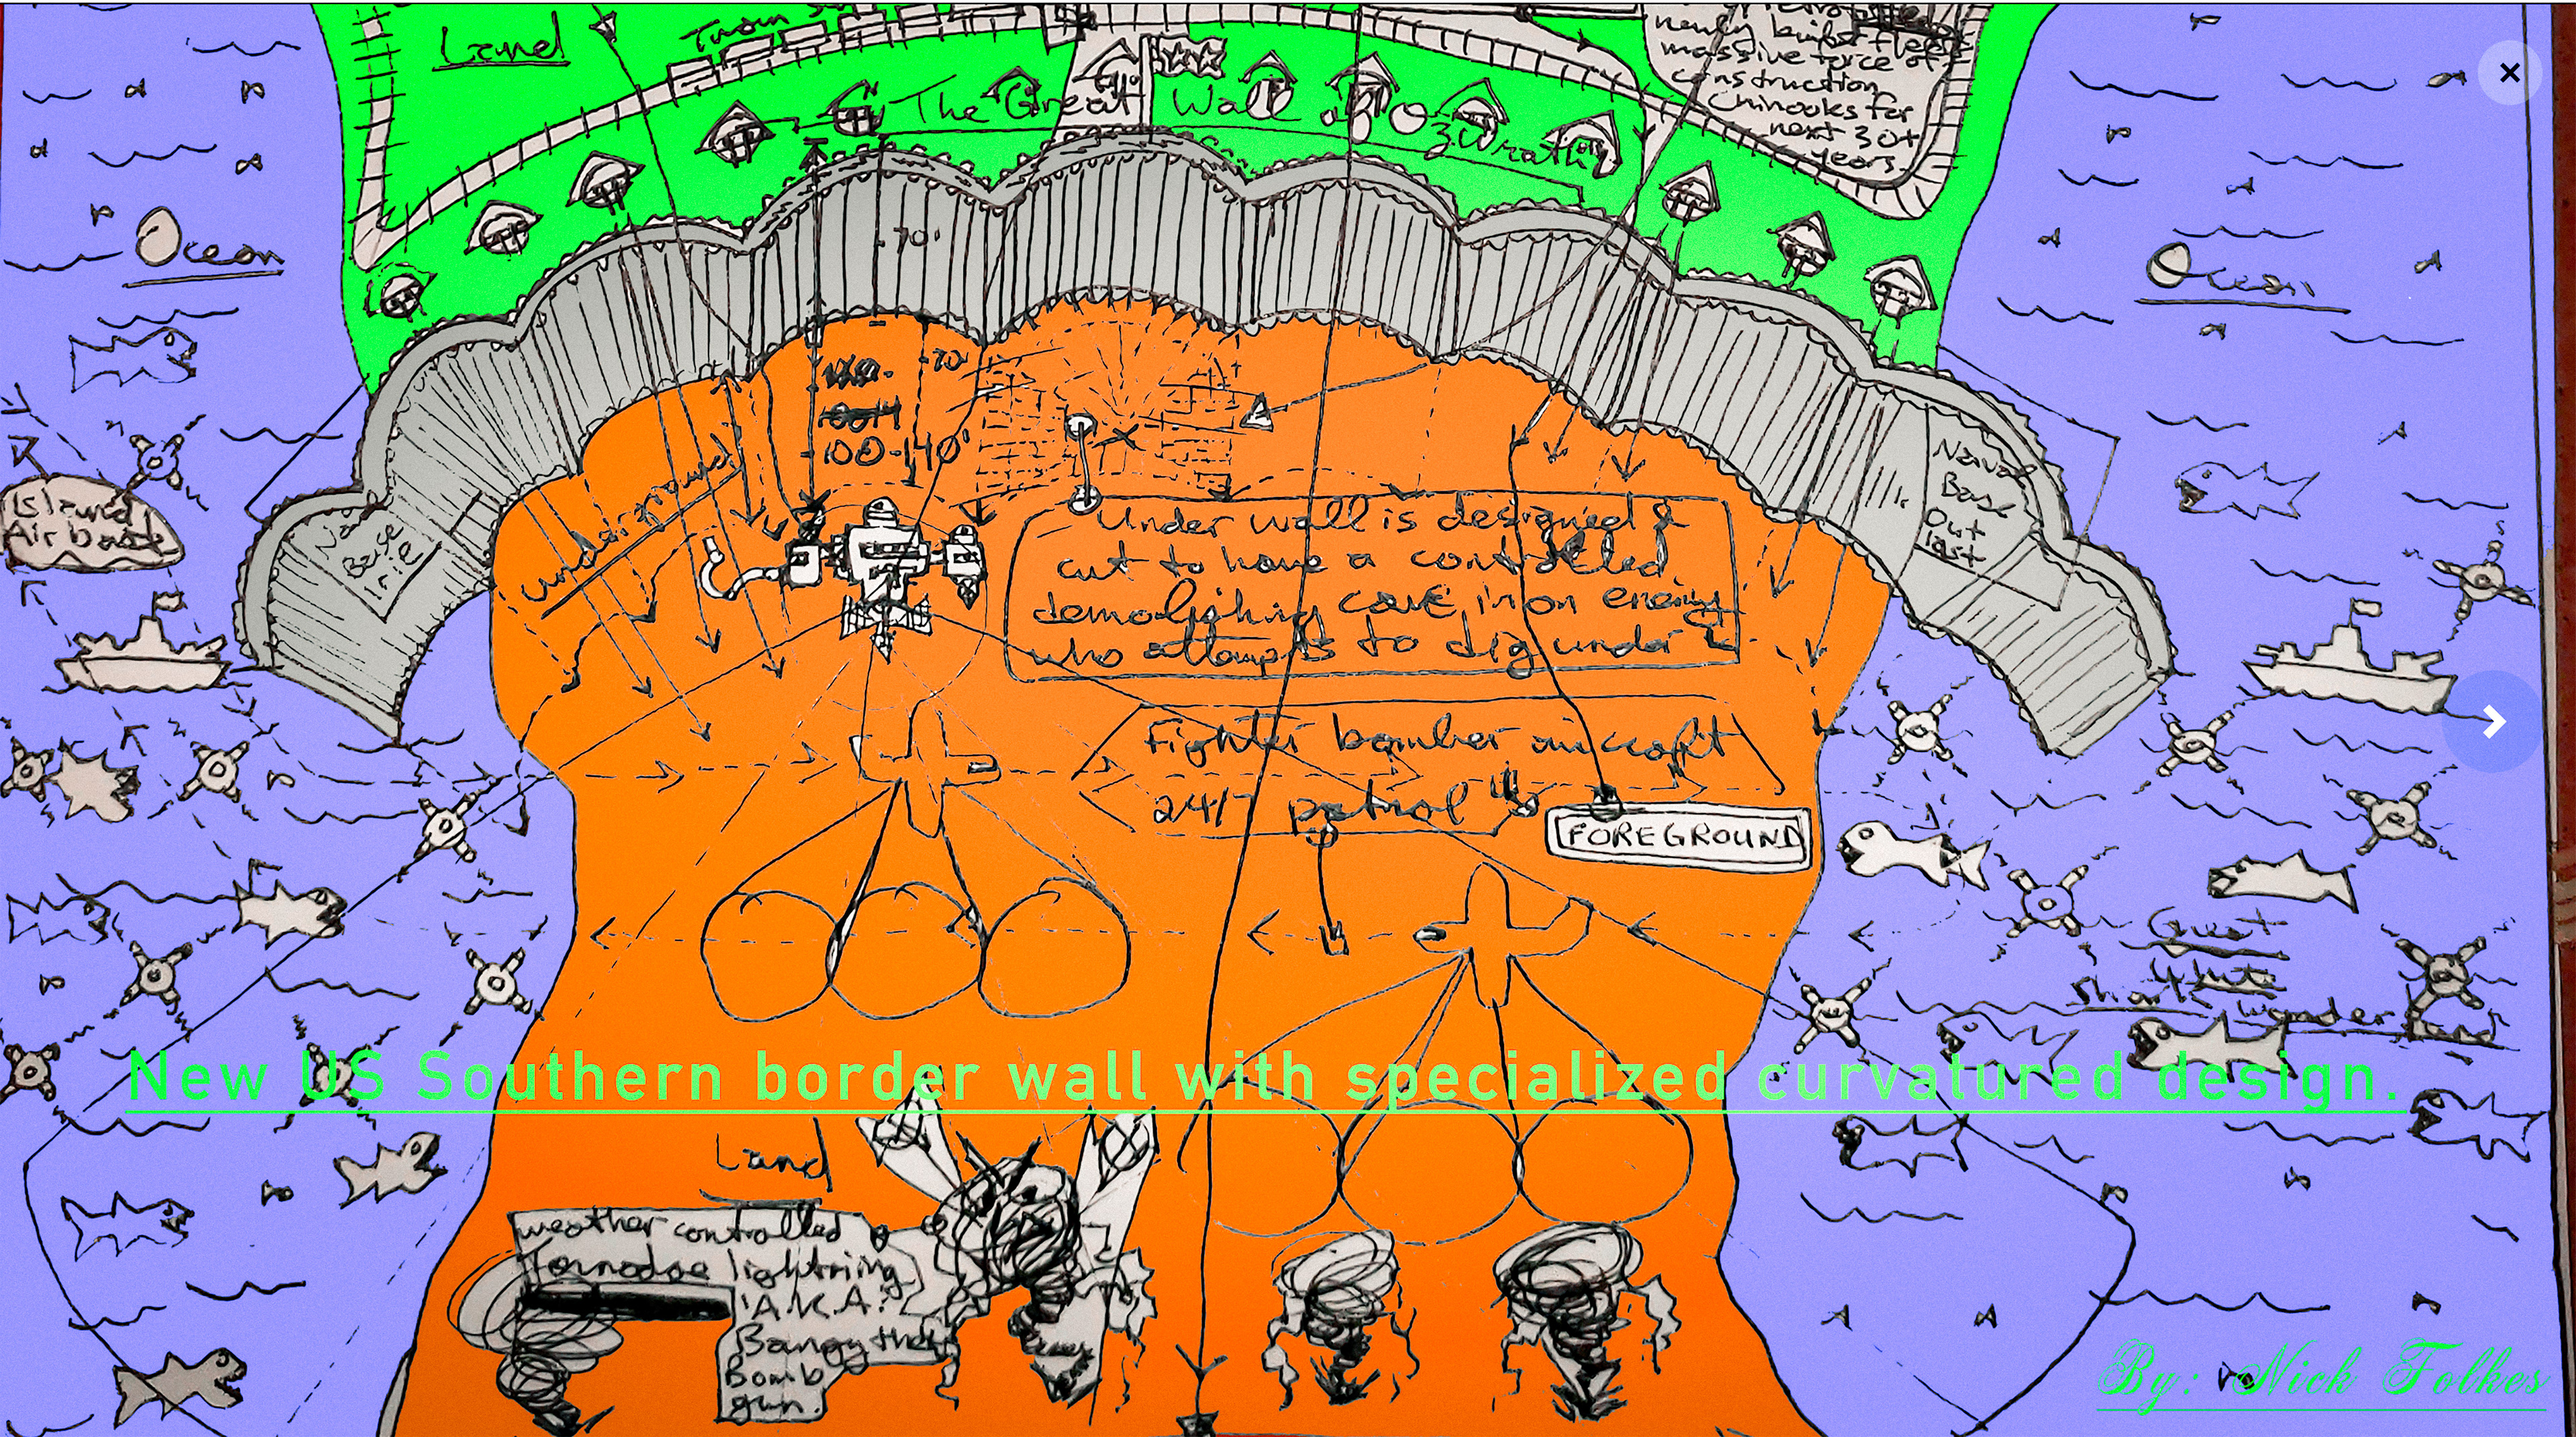 Land
Train
newly built fleet
massive force of
construction
Chinooks for
next 30+
years
The Great Wall of
Wrath
Ocean
Ocean
-70'
-70'
100-140'
Naval
Base
Out
last
Island
Air base
Base
underground
Under wall is designed &
cut to have a controlled
demolishing cave in on enemy
who attempts to dig under it
Fighter bomber aircraft
24/7 patrol
FOREGROUND
Great
White
Shark wonderland
New US Southern border wall with specialized curvatured design.
Land
weather controlled
Tornadoe lightning
A.K.A.
Bangy the
Bomb
gun.
By: Nick Tolkes